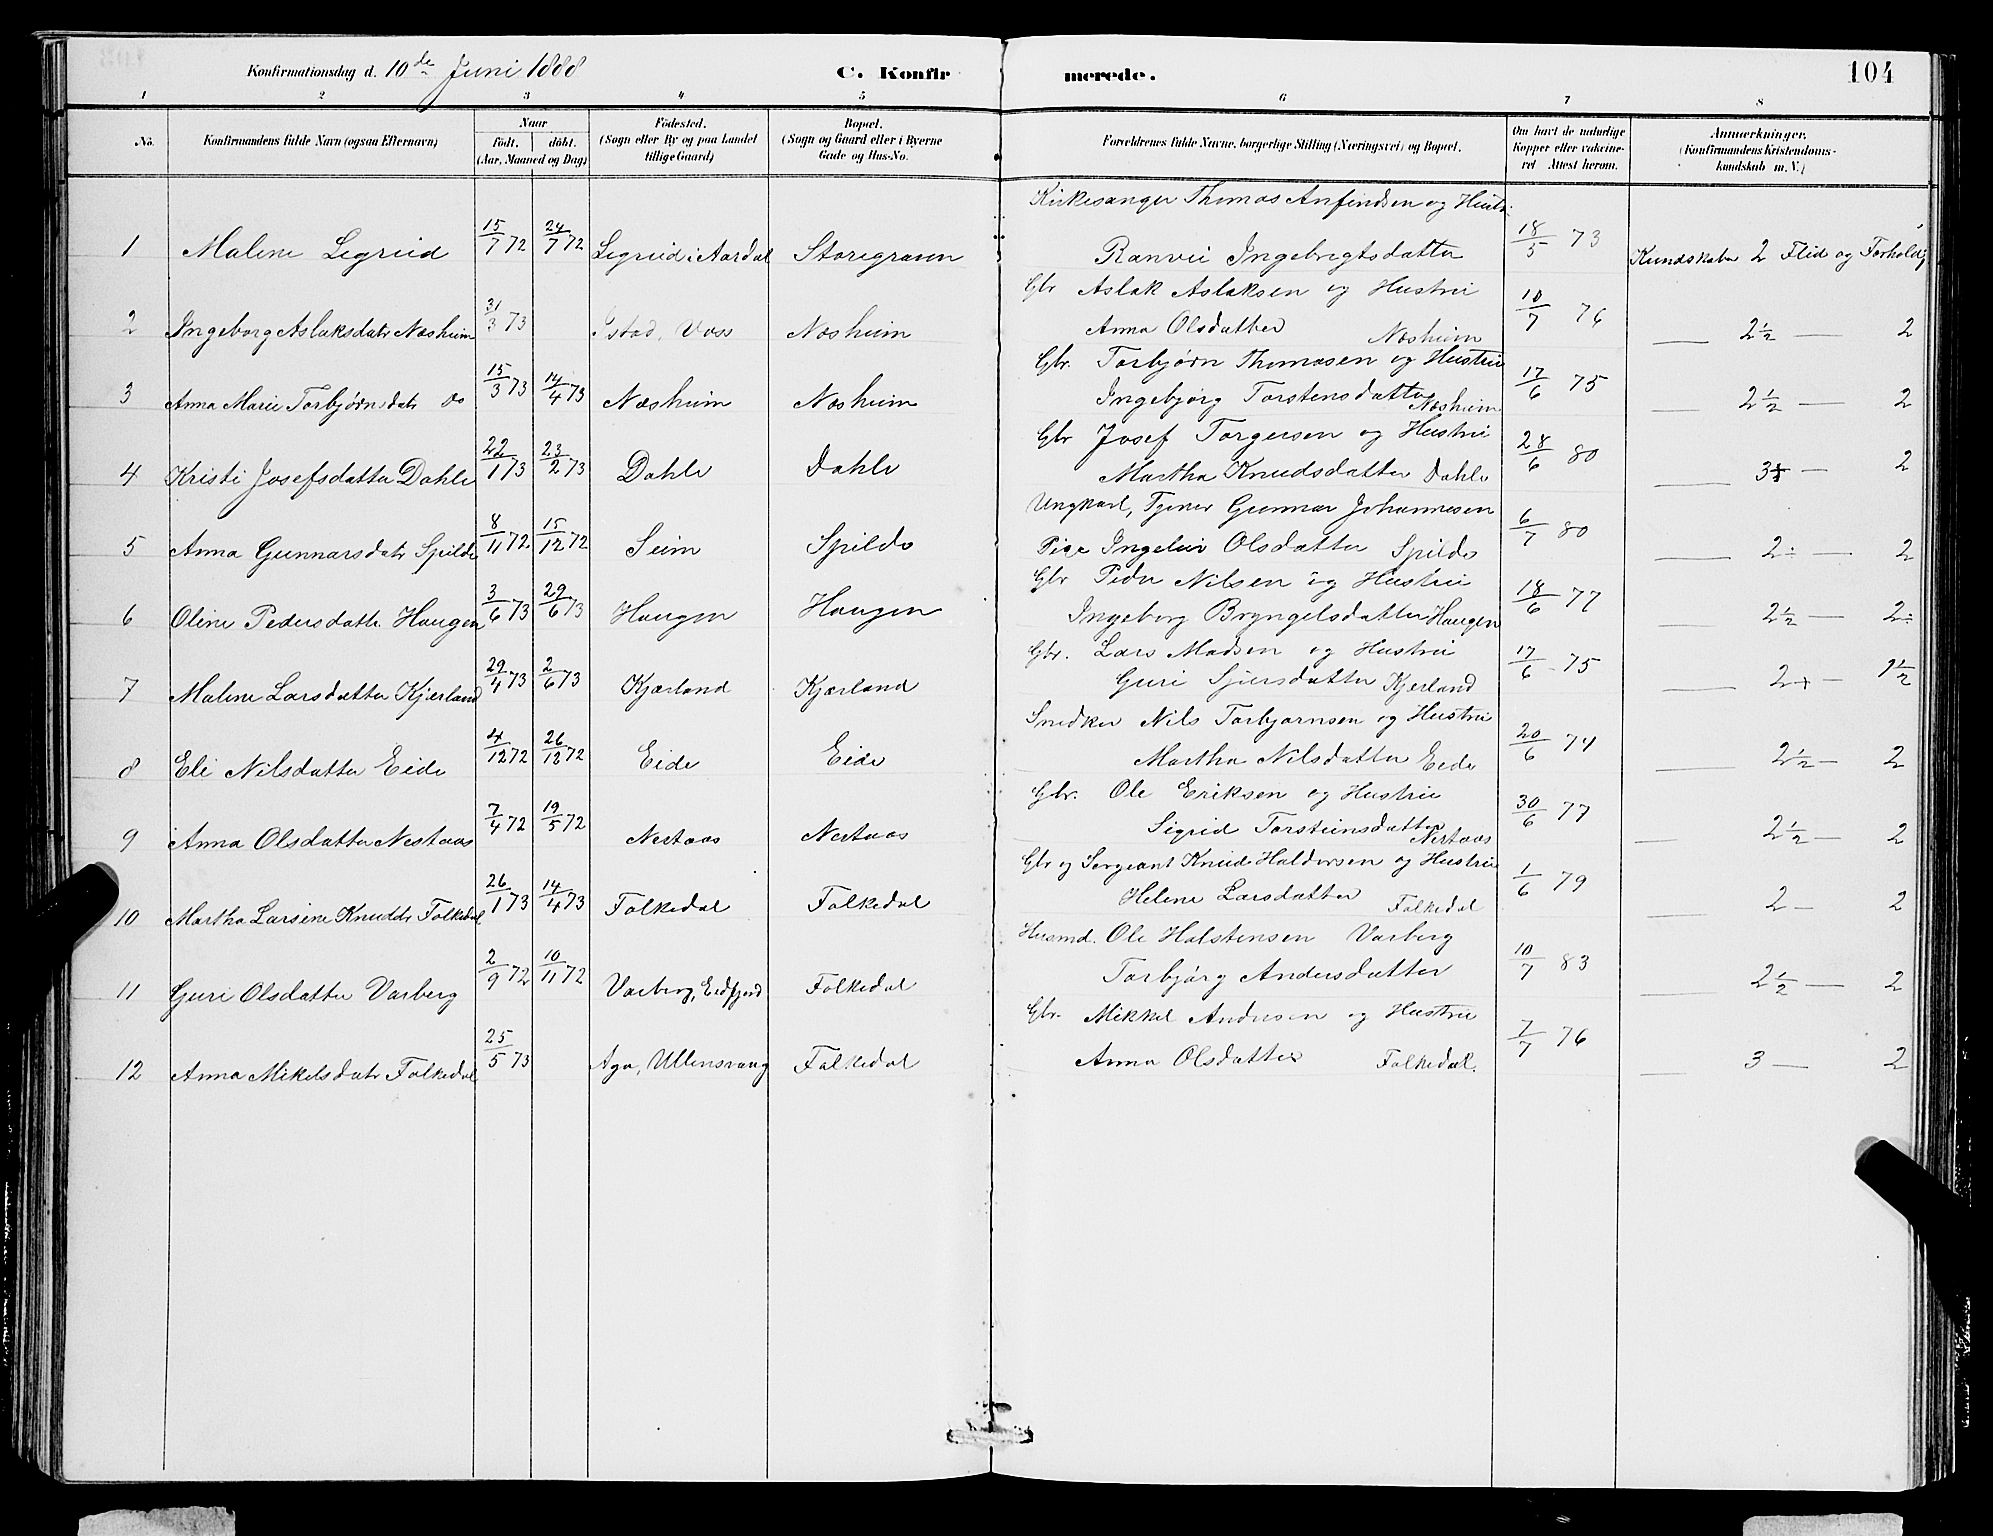 Konfirmationsdag d. 10de Juni 1888 C. Konfirmerede. 104
1 2 3 4 5 6 7 8
No. Konfirmandens fulde Navn (ogsaa Efternavn) Naar født. døbt. (Aar, Maaned og Dag) Fødested. (Sogn eller By og paa Landet tillige Gaard) Bopæl. (Sogn og Gaard eller i Byerne Gade og Hus-No. Forældrenes fulde Navne, borgerlige Stilling (Næringsvei) og Bopæl. Om havt de naturlige Kopper eller vakcineret Attest herom. Anmærkninger. (Konfirmandens Kristendomskundskab m.V.)
Kirkesanger Thomas Anfindsen og Hustr
1 Malene Legreid 15/7 72 24/7 72 Legreid i Aardal Storegraven Ranvei Ingebrigtsdatter 18/5 73 Kundskaber 2 Flid og Forhold
Gbr Aslak Aslaksen og Hustru
2 Ingeborg Aslaksdatr Næsheim 31/3 73 Istad, Voss Næsheim Anna Olsdatter Næsheim 10/7 76 — 2½ — 2
Gbr. Torbjørn Thomasen og Hustru
3 Anna Marie Torbjørnsdatr do 15/3 73 14/4 73 Næsheim Næsheim Ingebjørg Torstensdatter Næsheim 17/6 75 — 2½ — 2
Gbr Josef Torgersen og Hustru
4 Kristi Josefsdatter Dahle 22/1 73 23/2 73 Dahle Dahle Martha Knudsdatter Dahle 28/6 80 — 3+ — 2
Ungkarl, Tjener Gunnar Johannesen
5 Anna Gunnarsdatr Spilde 8/11 72 15/12 72 Seim Spilde Pige Ingeleiv Olsdatter Spilde 6/7 80 — 2÷ — 2
Gbr Peder Nilsen og Hustru
6 Oline Pedersdattr Haugen 3/6 73 29/6 73 Haugen Haugen Ingeborg Bryngelsdatter Haugen 18/6 77 — 2½ — 2÷
Gbr. Lars Madsen og Hustru
7 Malene Larsdatter Kjerland 29/4 73 2/6 73 Kjærland Kjærland Guri Sjursdatter Kjerland 17/6 75 — 2+ — 1½
Snedker Nils Torbjørnsen og Hustru
8 Eli Nilsdatter Eide 4/12 72 26/12 72 Eide Eide Martha Nilsdatter Eide 20/6 74 — 2½ — 2
Gbr. Ole Eriksen og Hustru
9 Anna Olsdatter Nestaas 7/4 72 19/5 72 Nestaas Nestaas Sigrid Torsteinsdatter Nestaas 30/6 77 — 2½ — 2
Gbr og Sergeant Knud Haldorsen og Hustru
10 Martha Larsine Knudsdr Folkedal 26/1 73 14/4 73 Folkedal Folkedal Helene Larsdatter Folkedal 1/6 79 — 2 — 2
Husmd. Ole Halstensen Varberg
11 Guri Olsdatter Varberg 2/9 72 10/11 72 Varberg, Eidfjord Folkedal Torbjørg Andersdatter 10/7 83 — 2½ — 2
Gbr. Mikkel Andersen og Hustru
12 Anna Mikelsdatr Folkedal 25/5 73 Aga, Ullensvang Folkedal Anna Olsdatter Folkedal. 7/7 76 — 3 — 2